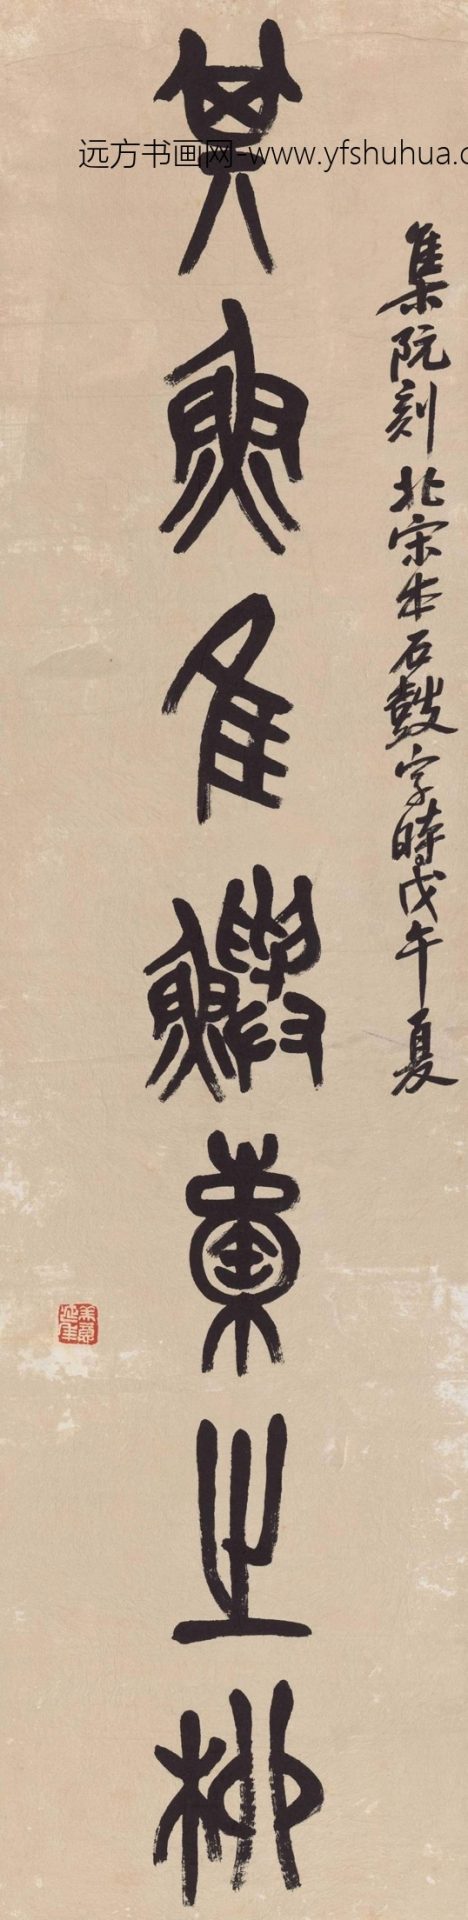 远方书画网-www.yfshuhua.c
集阮刻北宋本石鼓字時戊午夏
其魚隹鱮橐之柳
美意
延年